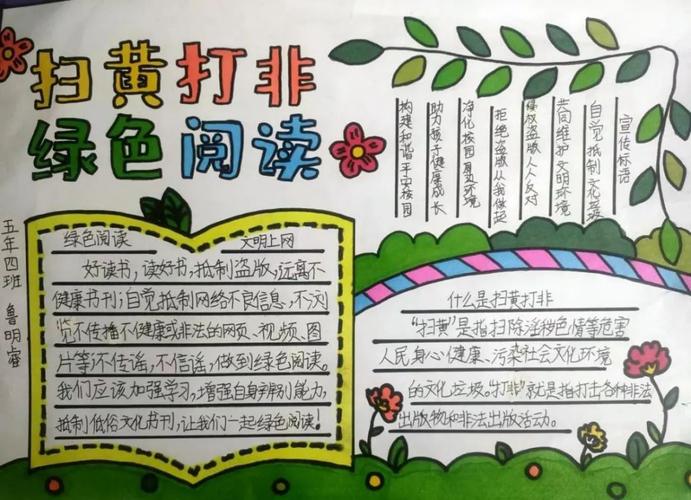 扫黄打非
绿色阅读
宣传标语
自觉抵制文化垃圾
共同维护文明环境
侵权盗版人人反对
拒绝盗版从我做起
净化校园环境
助力孩子健康成长
构建和谐平安校园
五年四班 鲁明睿
绿色阅读 文明上网
好读书,读好书,抵制盗版,远离不
健康书刊;自觉抵制网络不良信息,不浏
览不传播不健康或非法的网页、视频、图
片等不传谣,不信谣,做到绿色阅读。
我们应该加强学习,增强自身辨别能力,
抵制低俗文化书刊,让我们一起绿色阅读!
什么是扫黄打非
"扫黄"是指扫除淫秽色情等危害
人民身心健康、污染社会文化环境
的文化垃圾。"打非"就是指打击各种非法
出版物和非法出版活动。